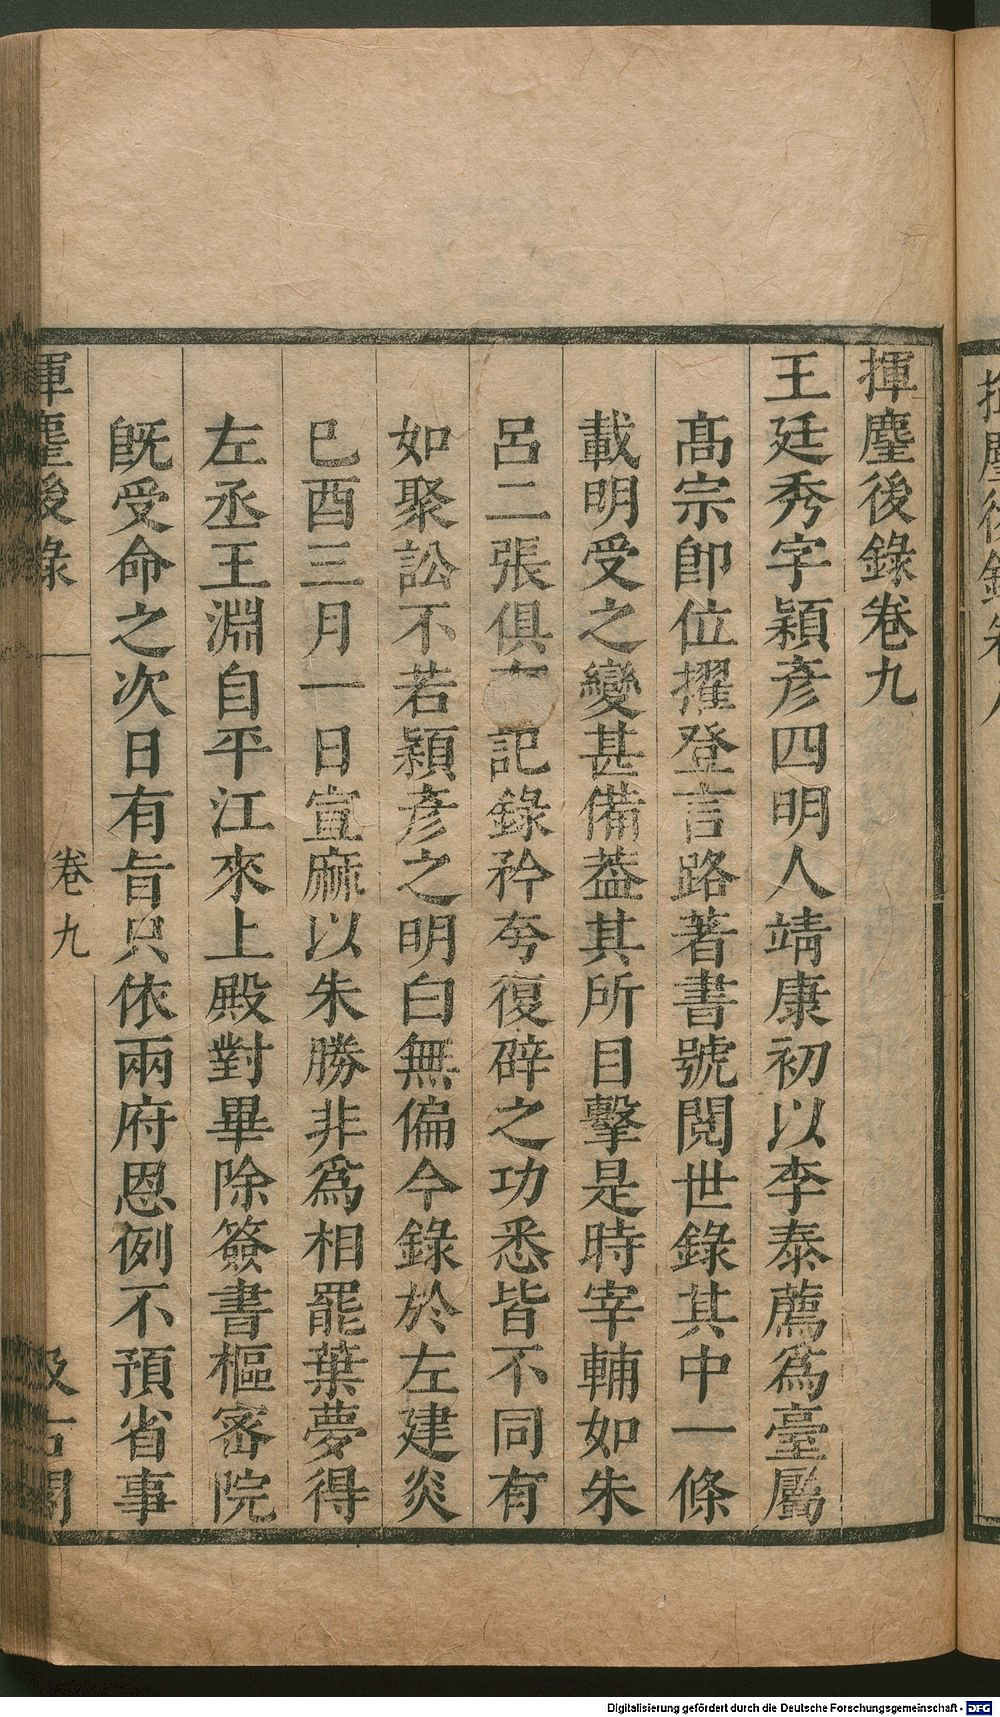 揮麈後錄卷九
王廷秀字穎彥四明人靖康初以李泰薦爲臺屬
髙宗卽位擢登言路著書號閱世錄其中一條
載明受之變甚備葢其所目擊是時宰輔如朱
呂二張俱記錄矜夸復辟之功悉皆不同有
如聚訟不若穎彥之明白無偏今錄於左建炎
巳酉三月一日宣麻以朱勝非爲相罷葉夢得
左丞王淵自平江來上殿對畢除簽書樞密院
旣受命之次日有旨只依兩府恩例不預省事
揮麈後錄 卷九 汲古閣
Digitalisierung gefördert durch die Deutsche Forschungsgemeinschaft - DFG